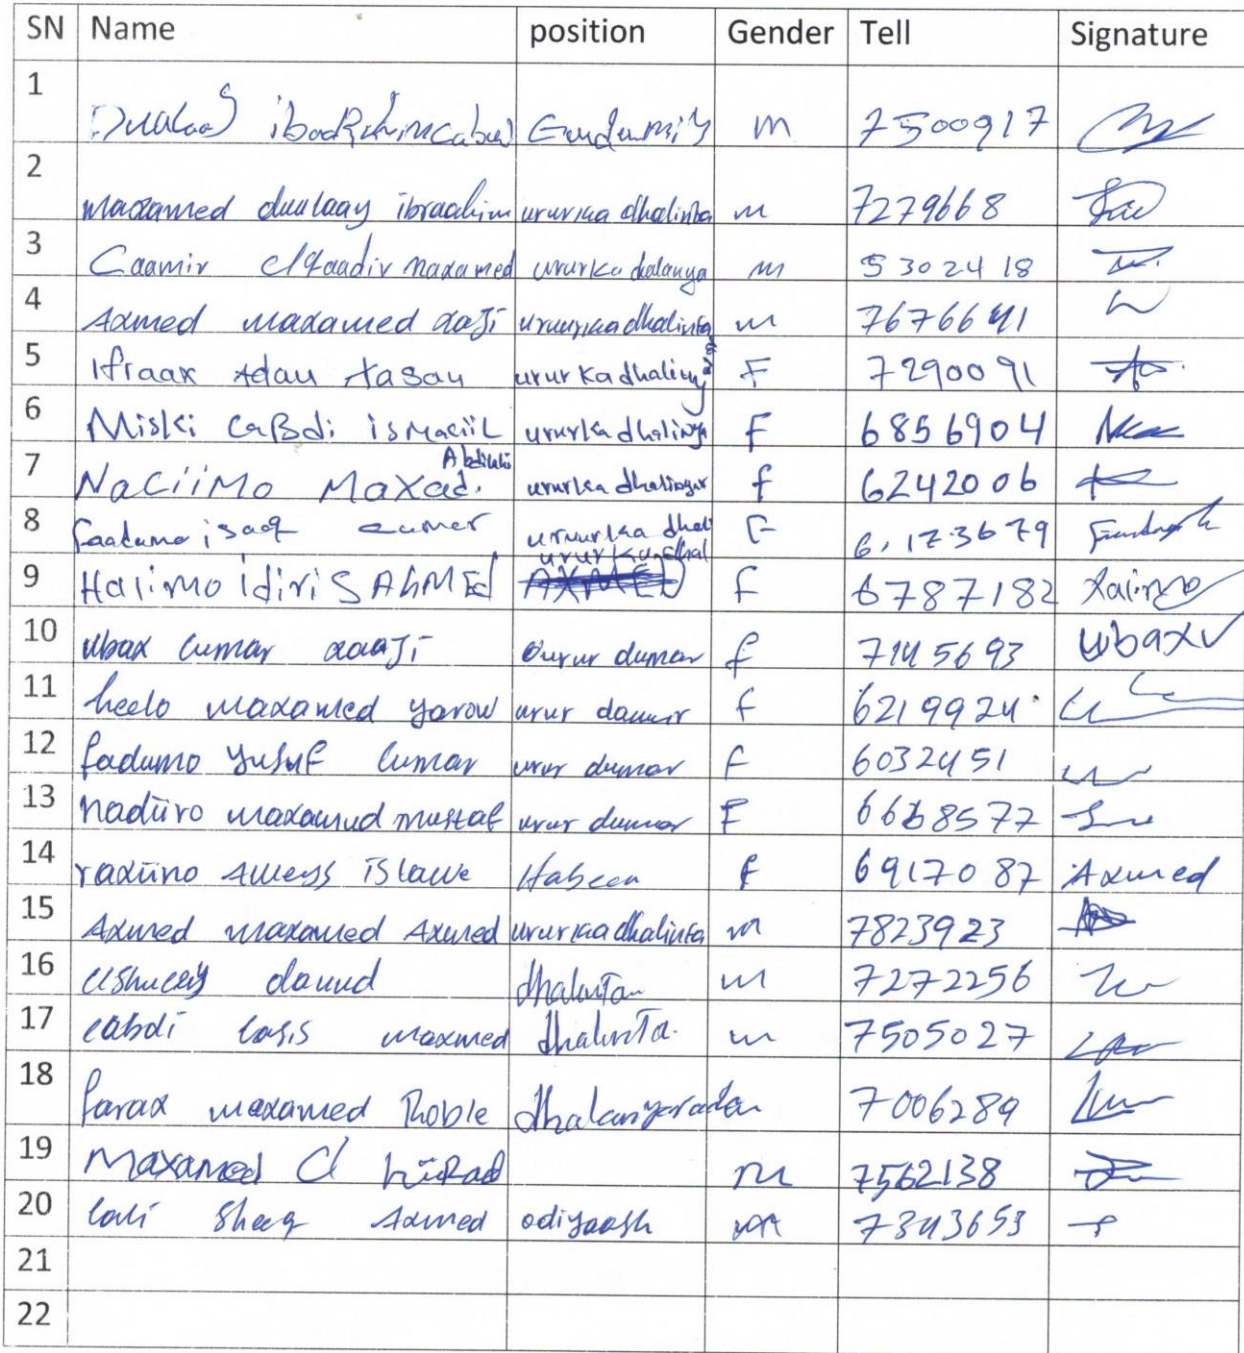 SN Name position Gender Tell Signature
1 m 7500917
2 maxamed duulaay ibraahim ururka dhalinta m 7279668
3 Caamir C/qaadir maxamed ururka dalanya m 5302418
4 Axmed maxamed xaaji ururka dhalinta m 7676641
5 Ifraax Adan Xasan ururka dhaliny F 7290091
6 Miski CaBdi ismaciiL ururka dhalinya F 6856904
7 NaCiiMo Maxad. ururka dhalinyar f 6242006
8 faaduma isaaq cumer ururka dhal F 6,173679
9 Halimo idiris AhMEd ururka dhal AXMED f 6787182 Xalimo
10 ubax Cumar xaaji ourur dumar f 7145693 Ubax
11 heelo maxamed yarow urur dumar f 6219924
12 fadumo Yusuf Cumar urur dumar F 6032451
13 maxamud urur dumar F 6668577
14 Habeen f 6917087 Axmed
15 Axmed maxamed Axmed ururka dhalinta m 7823923
16 dauud dhalinta m 7272256
17 cabdi casis maxmed dhalinta m 7505027
18 farax maxamed Roble 7006289
19 Maxamed C/ m 7562138
20 Cali Sheeq Axmed odiyaash m 7343653
21
22